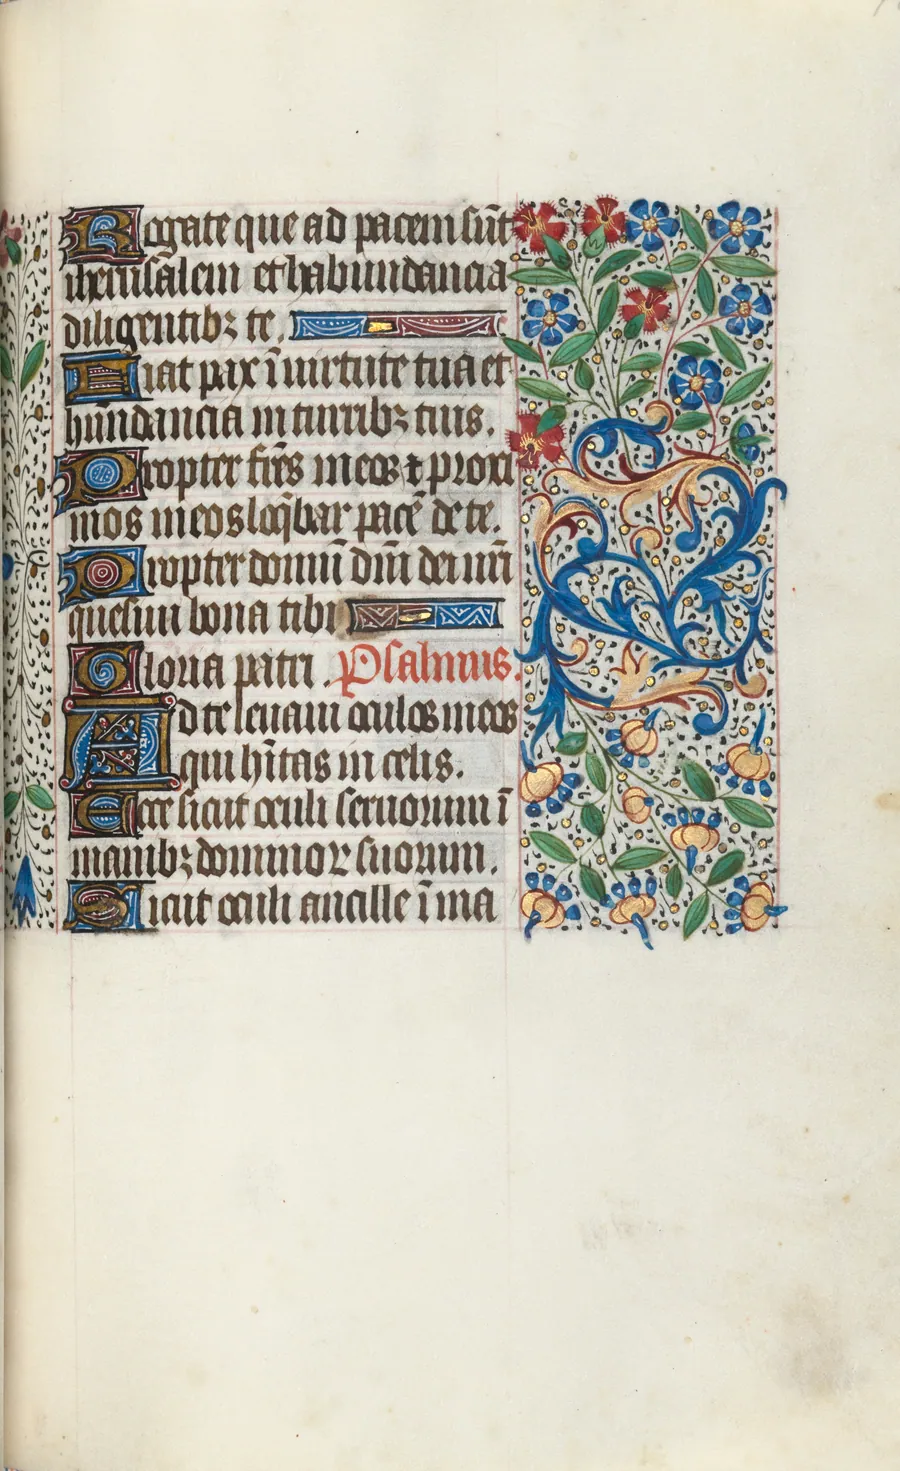 Rogate que ad pacem sūt
iherusalem et habundancia
diligentibꝫ te.
Fiat pax ī uirtute tua et
hūndancia in turribꝫ tuis.
Propter fr̄es meos ⁊ proxi
mos meos loq̄bar pacē de te.
Propter domū dn̄i dei nr̄i
quesiui bona tibi
Gloria patri . Psalmus.
Ad te leuaui oculos meos
qui hītas in celis.
Ecce sicut oculi seruorum ī
manibꝫ dominoꝝ suorum.
Sicut oculi ancille ī ma